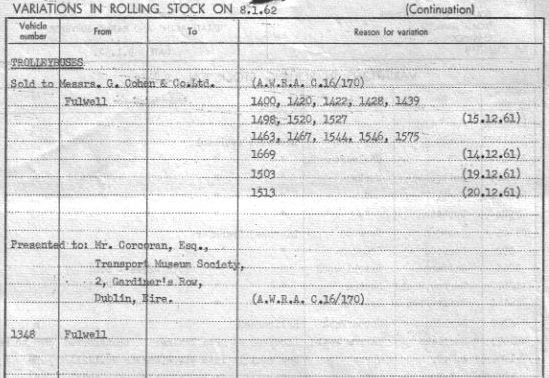 VARIATIONS IN ROLLING STOCK ON 8.1.62 (Continuation)
Vehicle number From To Reason for variation
TROLLEYBUSES
Sold to Messrs. G. Cohen & Co.Ltd. (A.W.R.A. C.16/170)
Fulwell 1400, 1420, 1422, 1428, 1439
1498, 1520, 1527 (15.12.61)
1463, 1467, 1544, 1546, 1575
1669 (14.12.61)
1503 (19.12.61)
1513 (20.12.61)
Presented to: Mr. Corcoran, Esq.,
Transport Museum Society,
2, Gardiner's Row,
Dublin, Eire. (A.W.R.A. C.16/170)
1348 Fulwell